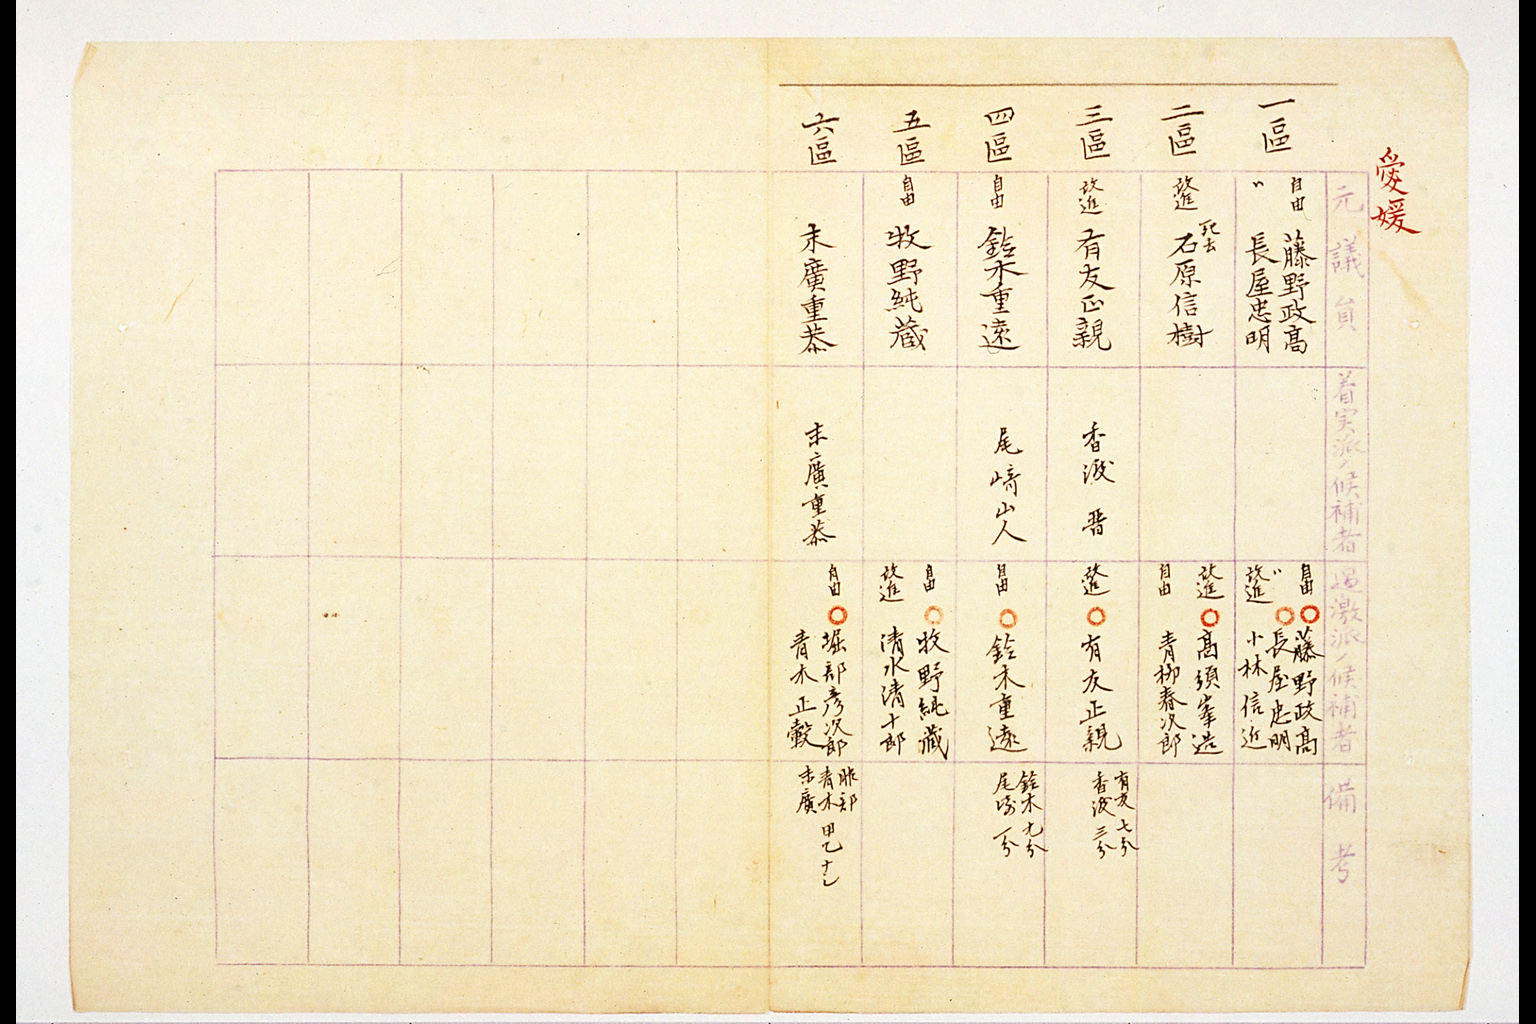 愛媛
元議員
着実派ノ候補者
過激派ノ候補者
備考
一區
自由 藤野政高
〃 長屋忠明
自由 ○ 藤野政高
〃 ○ 長屋忠明
改進 小林信近
二區
改進 石原信樹
死去
改進 ○ 高須峯造
自由 青柳春次郎
三區
改進 有友正親
香渡 晋
改進 ○ 有友正親
有友 七分
香渡 三分
四區
自由 鈴木重遠
尾崎山人
自由 ○ 鈴木重遠
鈴木 九分
尾崎 一分
五區
自由 牧野純蔵
自由 ○ 牧野純蔵
改進 清水清十郎
六區
末廣重恭
末廣重恭
自由 ○ 堀部彦次郎
青木正
青木
末廣
甲乙ナシ